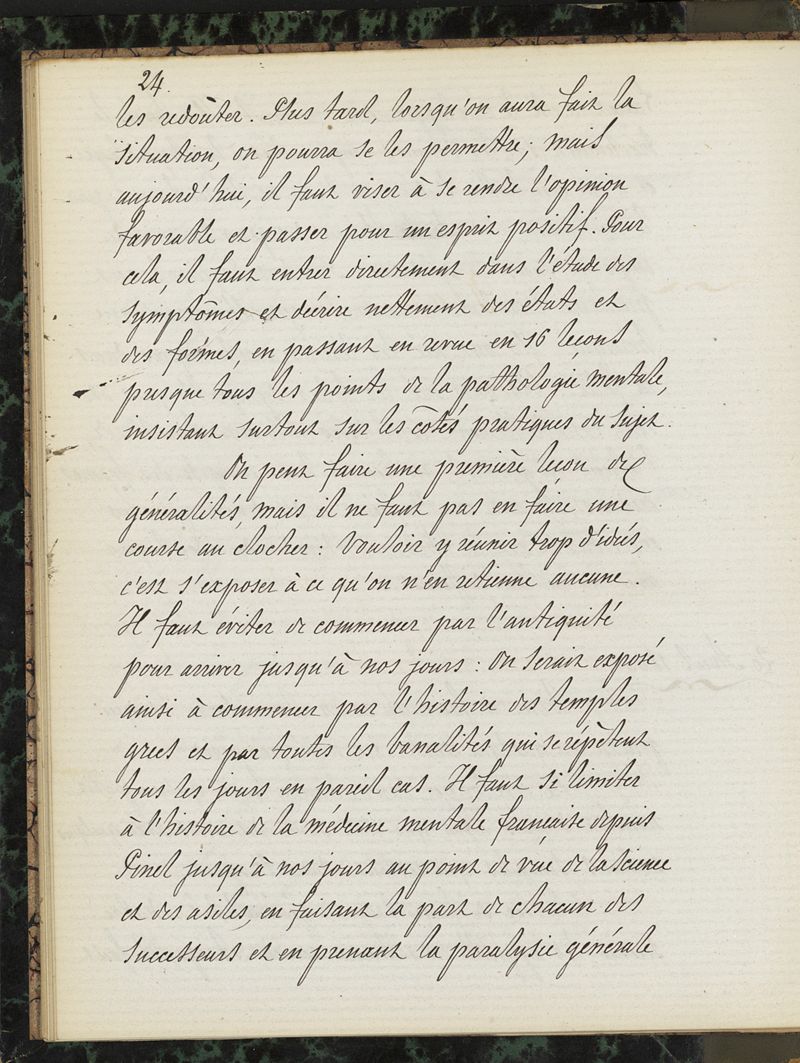 24.
les redoûter. Plus tard, lorsqu'on aura fait la
situation, on pourra se les permettre; mais
aujourd'hui, il faut viser à se rendre l'opinion
favorable et passer pour un esprit positif. Pour
cela, il faut entrer directement dans l'étude des
symptômes et décrire nettement des états et
des formes, en passant en revue en 16 leçons
presque tous les points de la pathologie mentale,
insistant surtout sur les côtés pratiques du sujet.
On peut faire une première leçon de
généralités, mais il ne faut pas en faire une
course au clocher : Vouloir y réunir trop d'idées,
c'est s'exposer à ce qu'on n'en retienne aucune.
Il faut éviter de commencer par l'antiquité
pour arriver jusqu'à nos jours : On serait exposé
ainsi à commencer par l'histoire des temples
grecs et par toutes les banalités qui se répètent
tous les jours en pareil cas. Il faut se limiter
à l'histoire de la médecine mentale française depuis
Pinel jusqu'à nos jours au point de vue de la science
et des asiles, en faisant la part de chacun des
successeurs et en prenant la paralysie générale